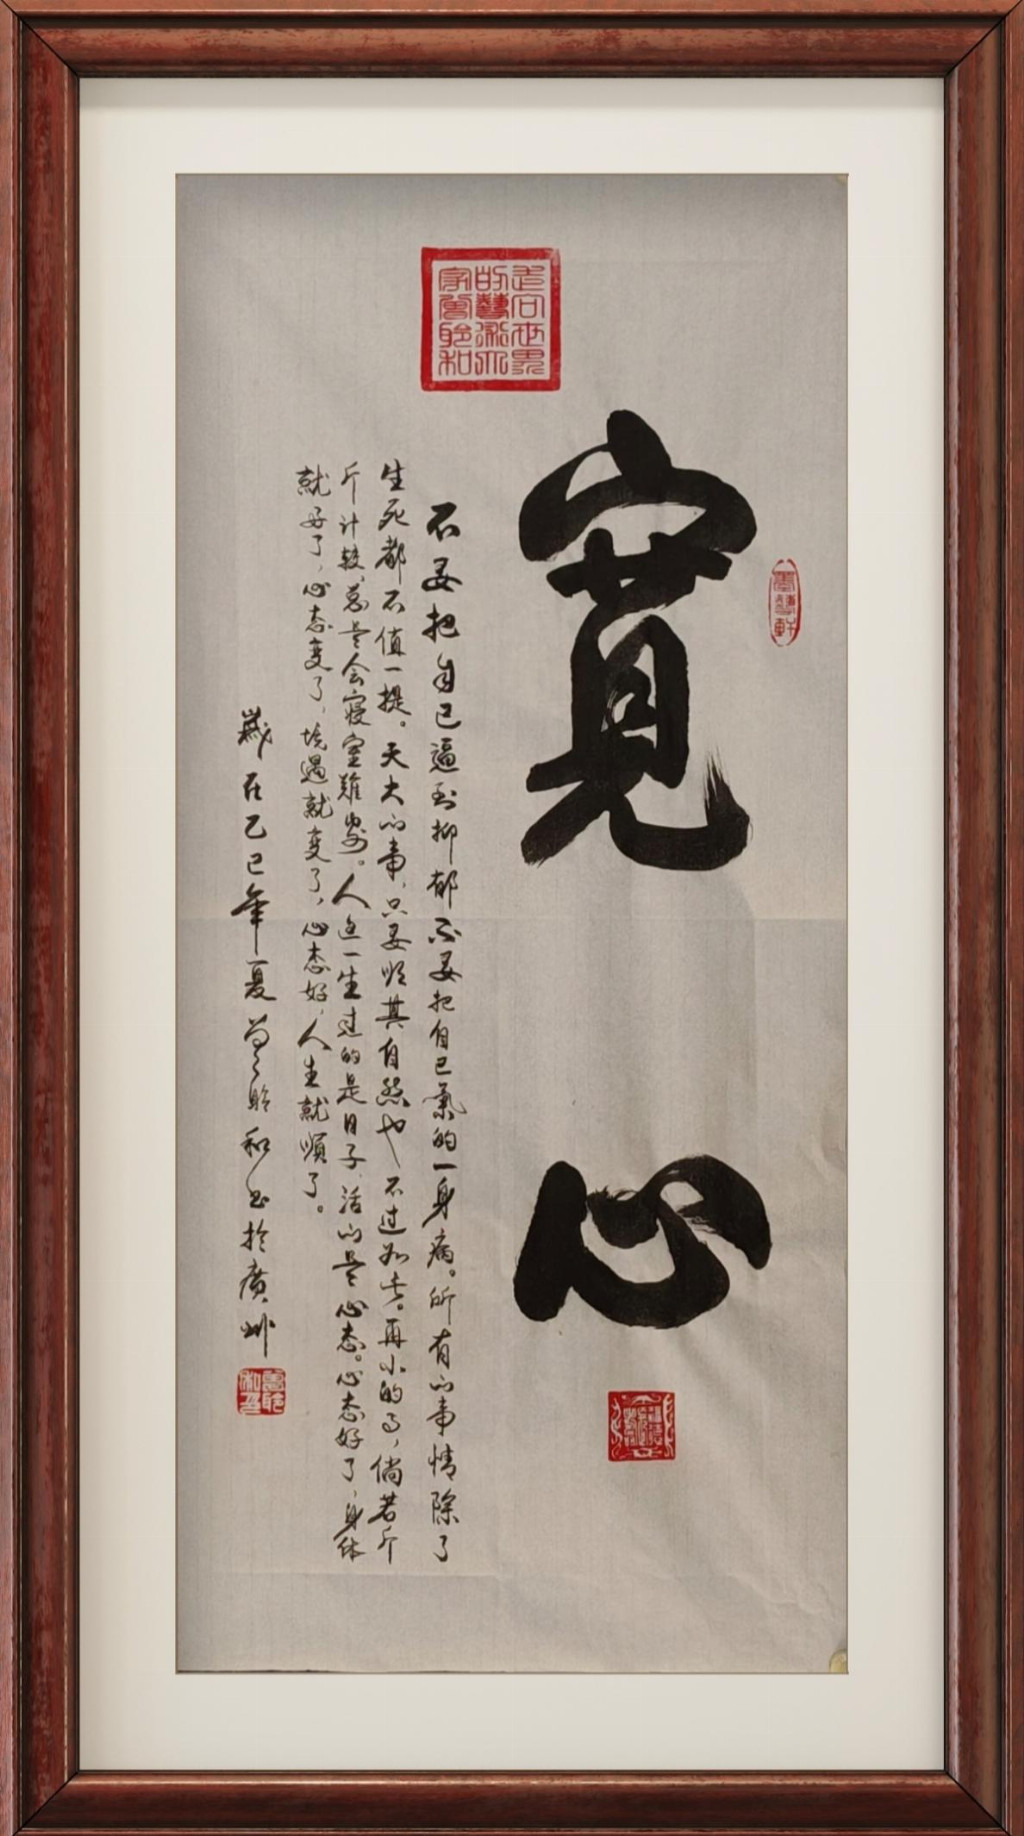 寬心
不要把自己逼到抑郁不要把自己氣的一身病。所有的事情除了
生死都不值一提。天大的事,只要順其自然也不过如此。再小的事,倘若斤
斤计较,總是会寝室難安。人这一生过的是日子,活的是心态。心态好了,身体
就好了,心态变了,境遇就变了,心态好,人生就順了。
歲在乙巳年夏曾聆和书於廣州
走向世界
的藝術大
家曾聆和